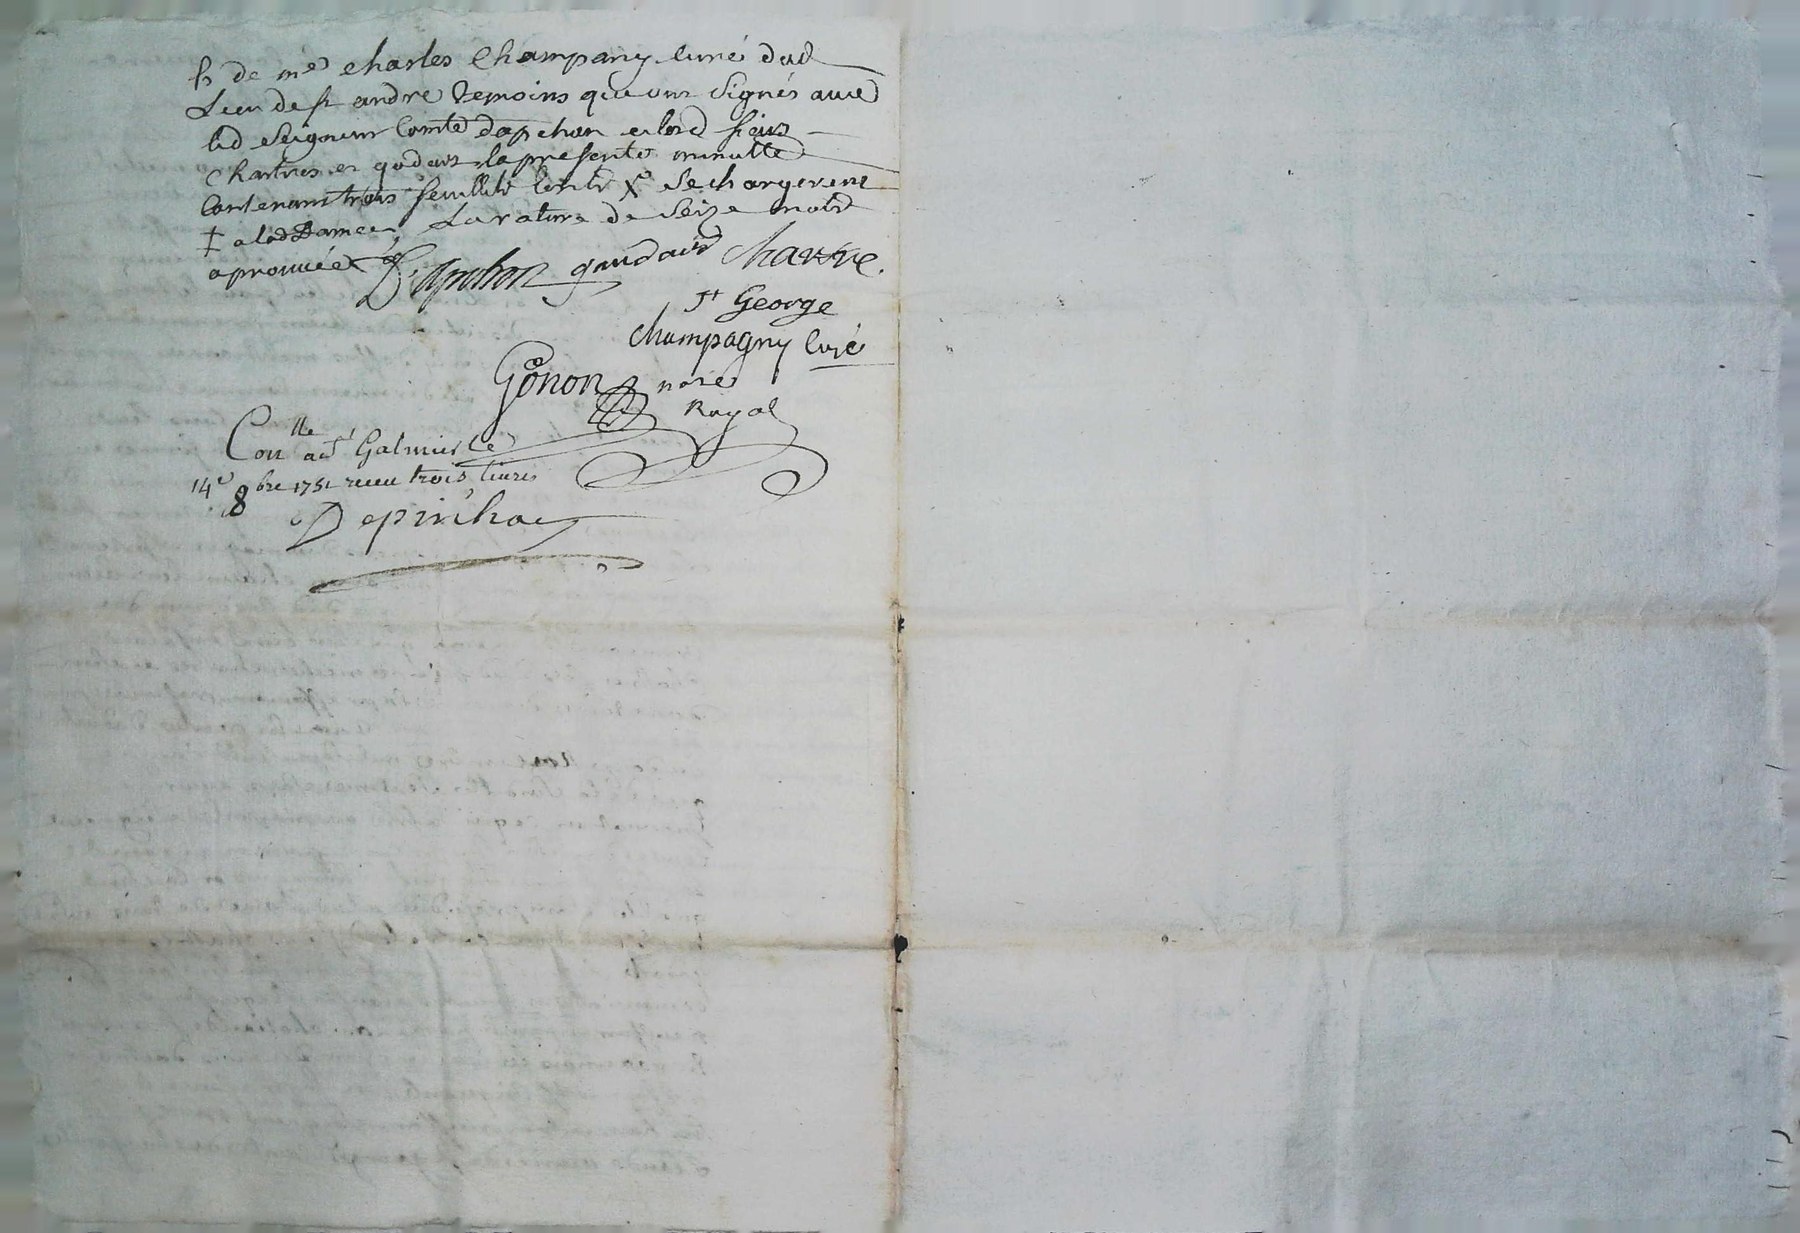 & de me Charles Champany curé dud
Lieu de st andre temoins qui ont signés avec
led seigneur Comte dapchon et lesd sieurs
Chartres et godard la presente minutte
Contenant trois feuillets se chargerent
‡ a lad Dame La rature de seize mots
aprouvée D'apchon gaudard Chartre.
st George
Champagny Curé
Gonon nore
Royal
Conlle a st Galmier le
14e 8bre 1751 receu trois livres
Depinhac